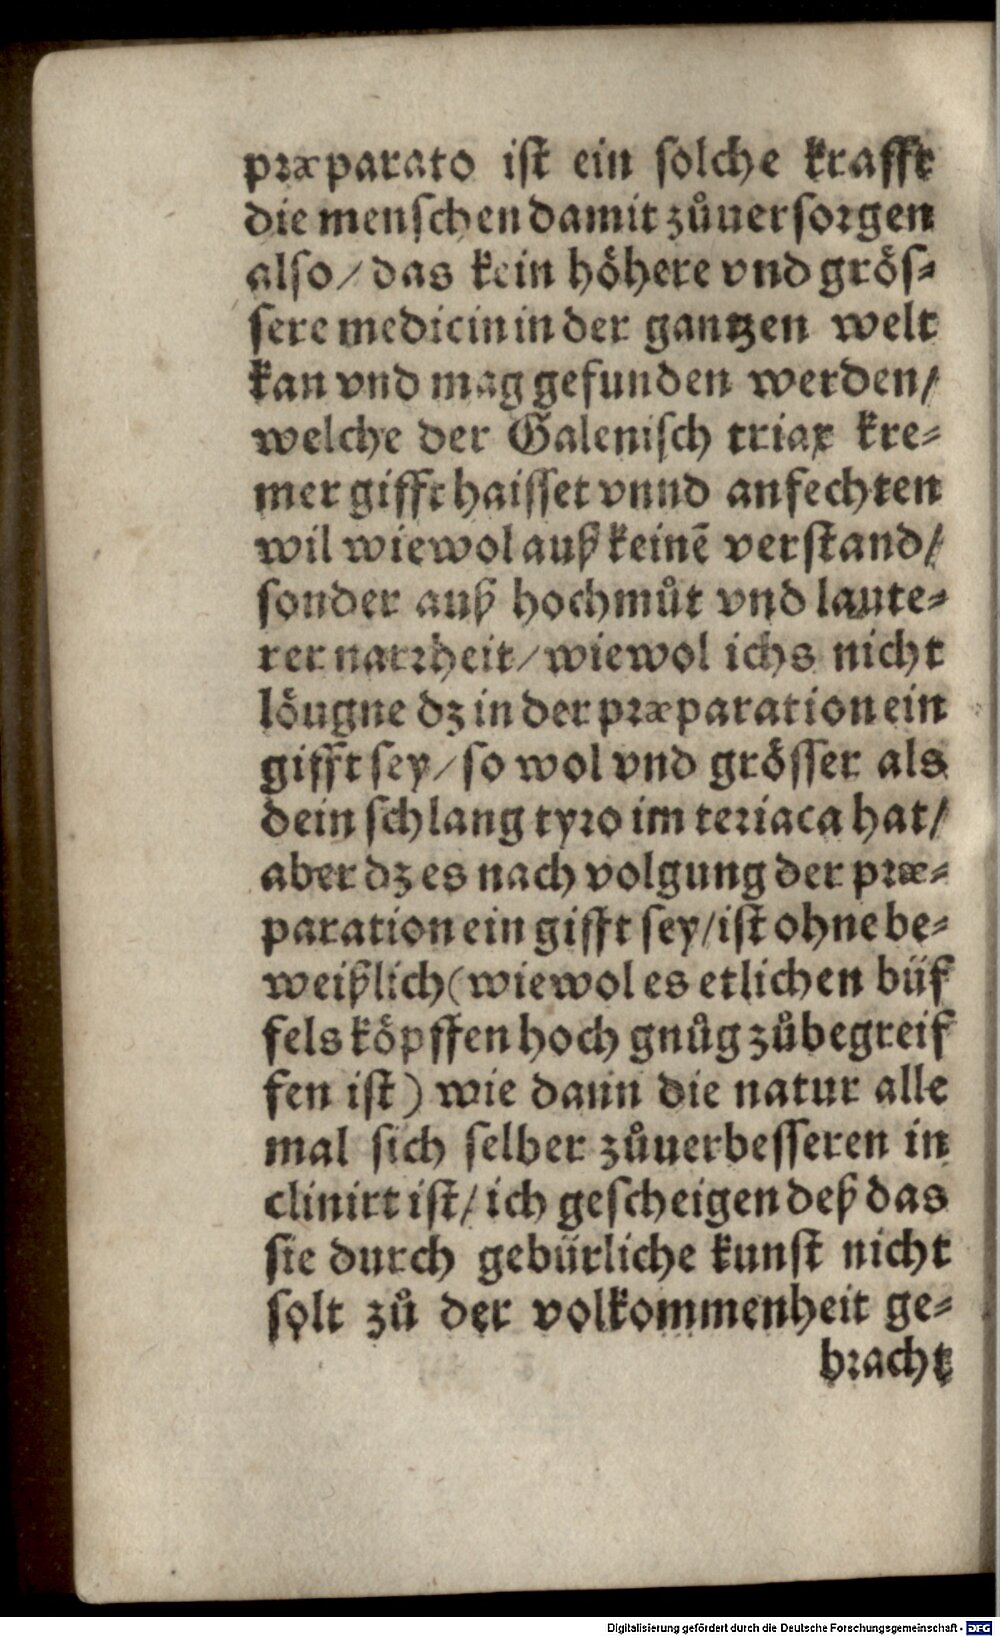 præparato ist ein solche krafft
die menschen damit zůuersorgen
also/ das kein höhere vnd grös-
sere medicin in der gantzen welt
kan vnd mag gefunden werden/
welche der Galenisch triax kre-
mer gifft haisset vnnd anfechten
wil wiewol auß keinē verstand/
sonder auß hochmůt vnd laute-
rer narrheit/ wiewol ichs nicht
löugne dz in der præparation ein
gifft sey/ so wol vnd grösser als
dein schlang tyro im teriaca hat/
aber dz es nach volgung der præ-
paration ein gifft sey/ ist ohne be-
weißlich (wiewol es etlichen büf
fels köpffen hoch gnůg zůbegreif
fen ist) wie dann die natur alle
mal sich selber zůuerbesseren in
clinirt ist/ ich gescheigen deß das
sie durch gebürliche kunst nicht
solt zů der volkommenheit ge-
bracht
Digitalisierung gefördert durch die Deutsche Forschungsgemeinschaft - DFG